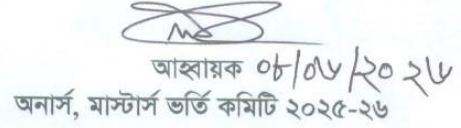 আহ্বায়ক ০৮/০৬/২০২৬
অনার্স, মাস্টার্স ভর্তি কমিটি ২০২৫-২৬